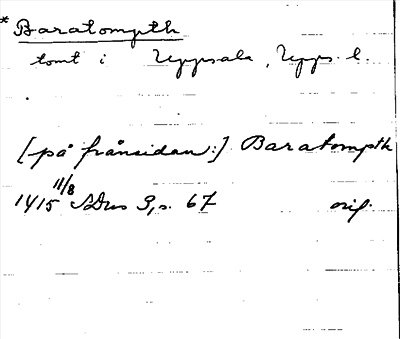 * Baratompth
tomt i Uppsala, Upps. l.
[på frånsidan:] Baratompth
1415 11/8 SDns 3, s. 67 orig.